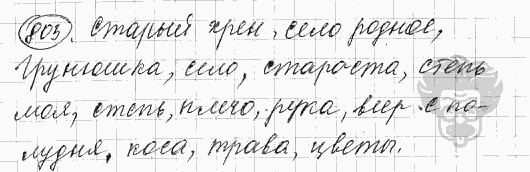 803. Старый хрен, село родное,
Грунюшка, село, староста, степь
моя, степь, плечо, рука, веер с по-
лудня, коса, трава, цветы.